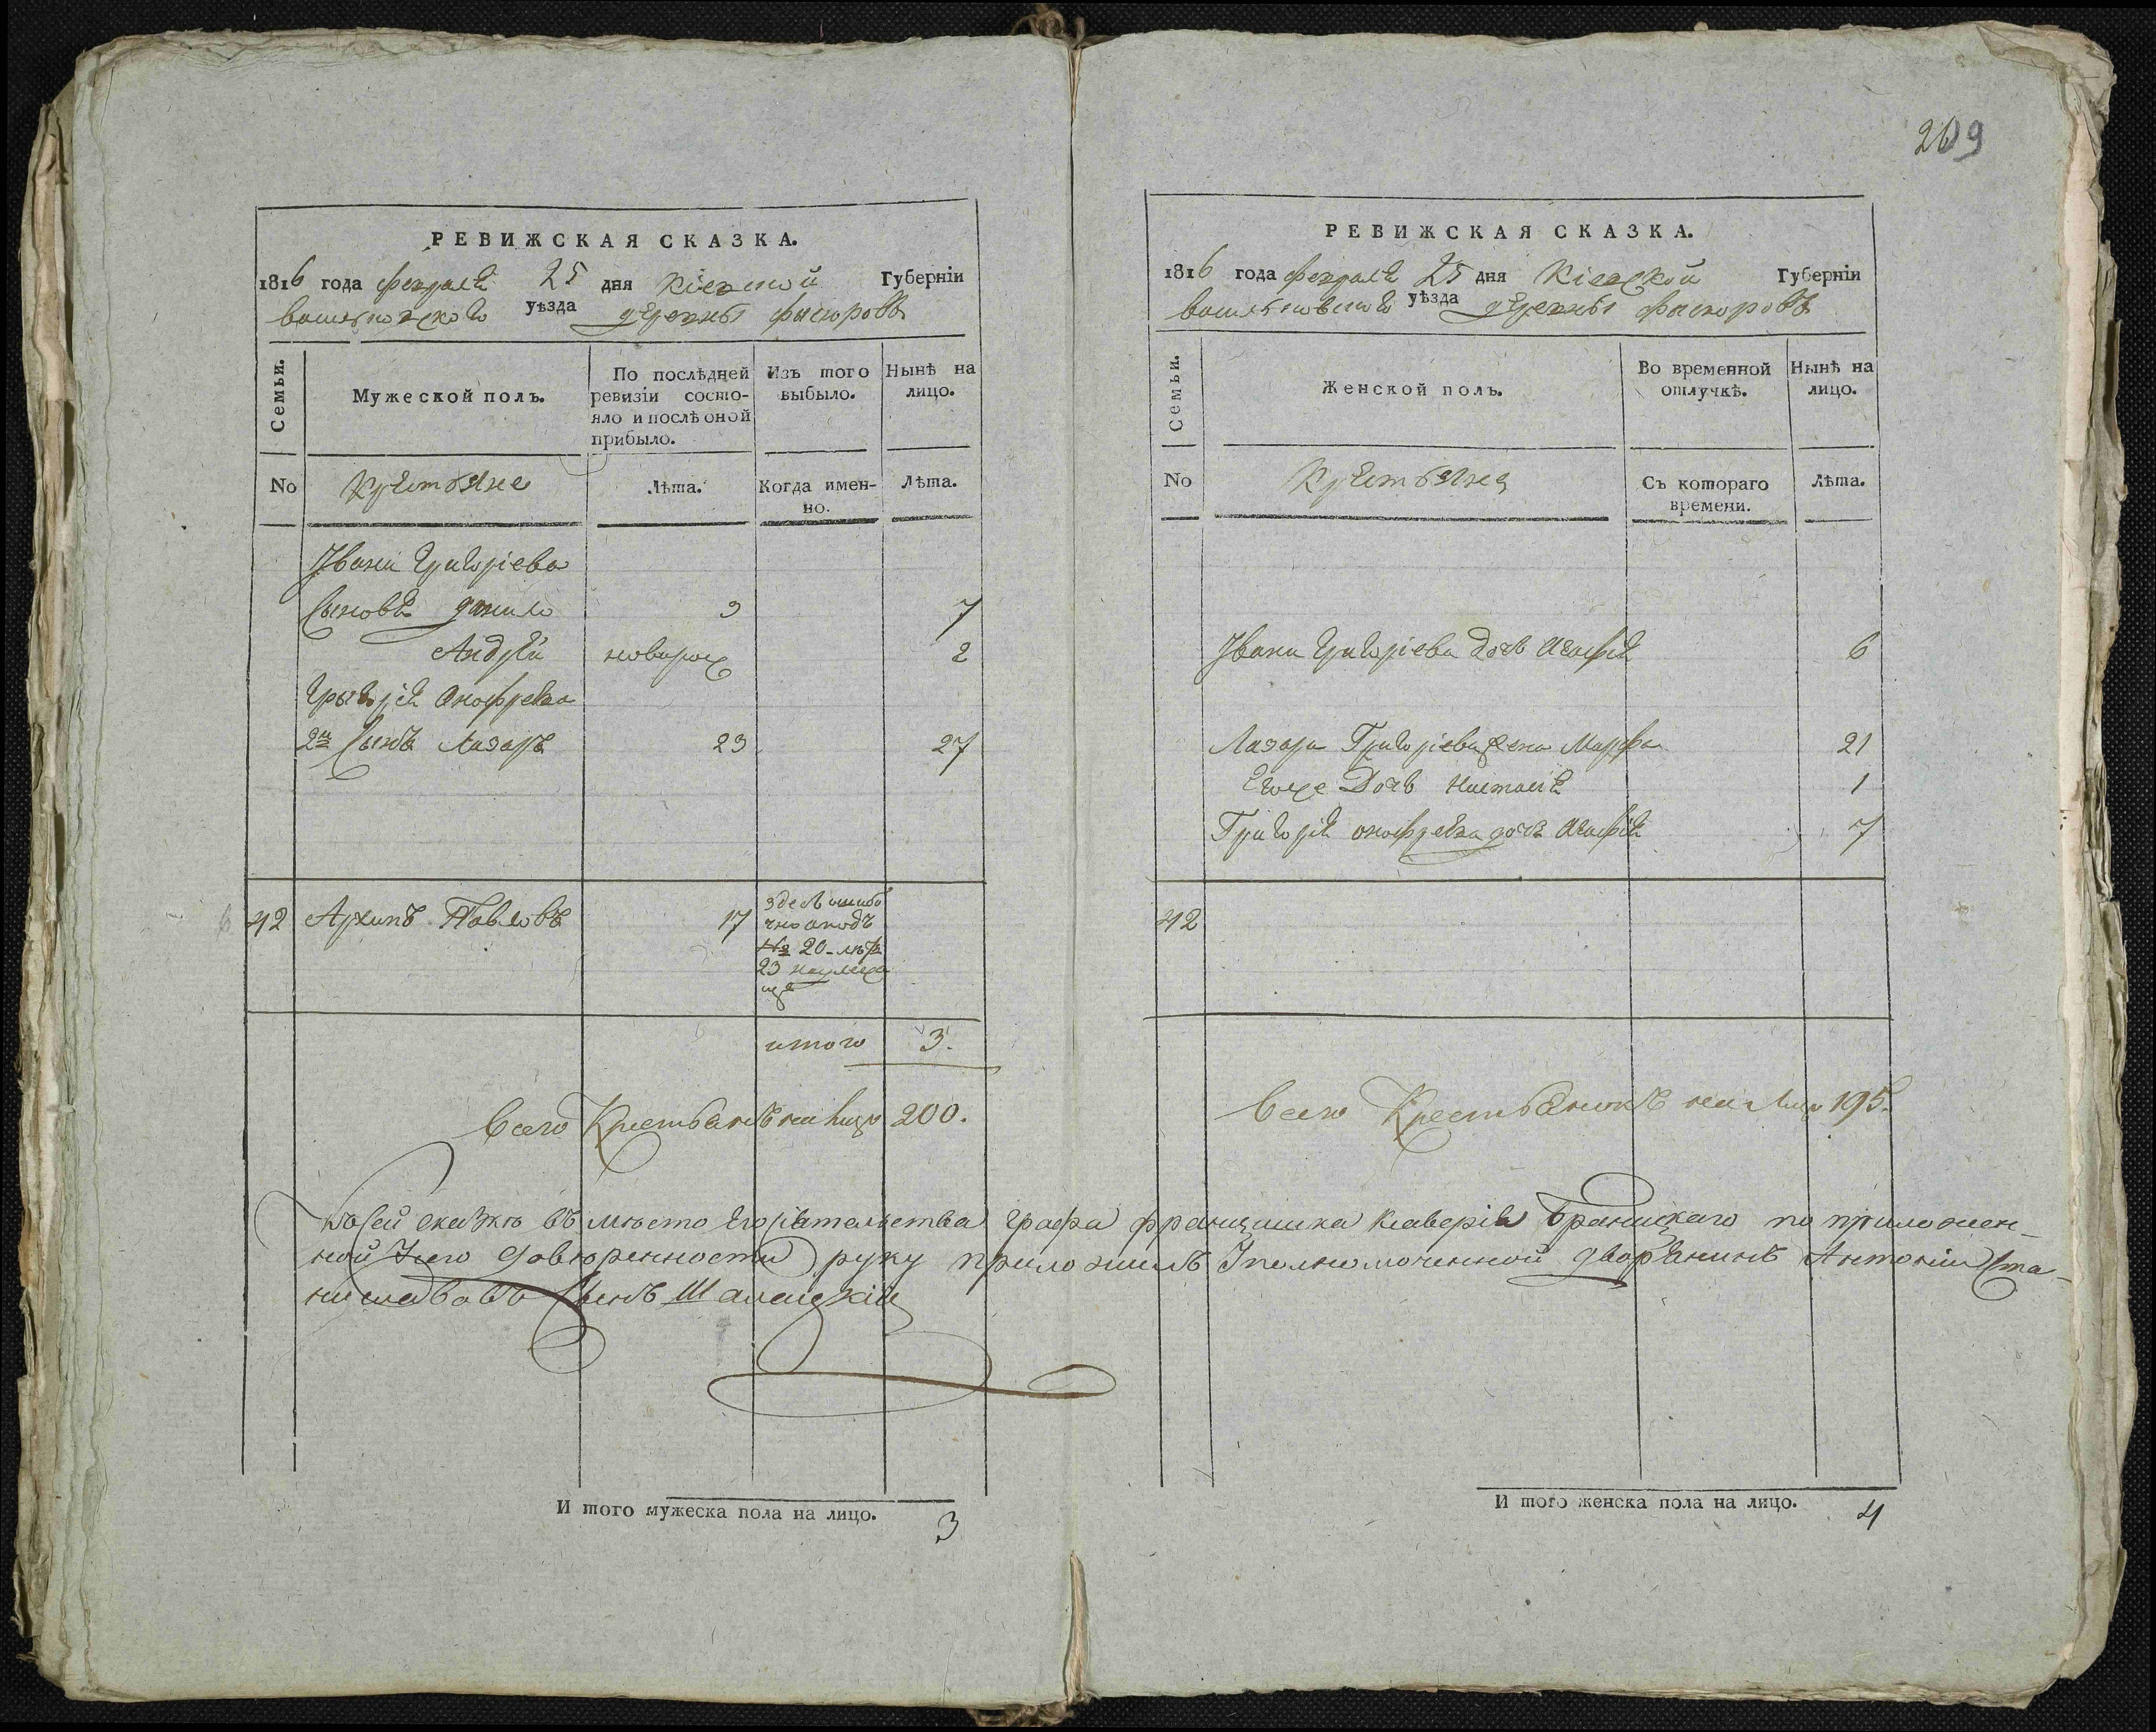 209
РЕВИЖСКАЯ СКАЗКА.
1816 года февраля 25 дня Кіевской Губерніи
васильковского уѣзда деревны
Семьи.
Мужеской полъ.
По послѣдней ревизіи состо-
яло и послѣ оной
прибыло.
Изъ того
выбыло.
Нынѣ на
лицо.
No
Крестьяне
Лѣта.
Когда имен-
но.
Лѣта.
Ивана Григоріева
Сыновя данило 3 7
Андрей новорож 2
Григорія Онофрева
2й Сынъ Лазарь 23 27
42 Архипъ Павловъ 17
здесь ошибо
чно
№ 20-мъ
23
итого 3.
Всего Крестьянъ на лицо 200.
РЕВИЖСКАЯ СКАЗКА.
1816 года февраля 25 дня Кіевской Губерніи
васильковского уѣзда деревны
Семьи.
Женской полъ.
Во временной
отлучкѣ.
Нынѣ на
лицо.
No
Крестьяне
Съ котораго
времени.
Лѣта.
Ивана Григоріева дочь Агафія 6
Лазаря Григоріева жена Марфа 21
Егоже Дочь Настасія 1
Григорія онофрева дочь Агафія 7
42
Всего Крестьянокъ на лицо 195.
Ксей сказкѣ въ мѣсто Его Сіятельства Графа францишка ксаверія Браницкаго по приложен-
ной довѣренности руку приложилъ дворянинъ Антоній Ста-
ниславовъ Сынъ
И того мужеска пола на лицо. 3
И того женска пола на лицо. 4